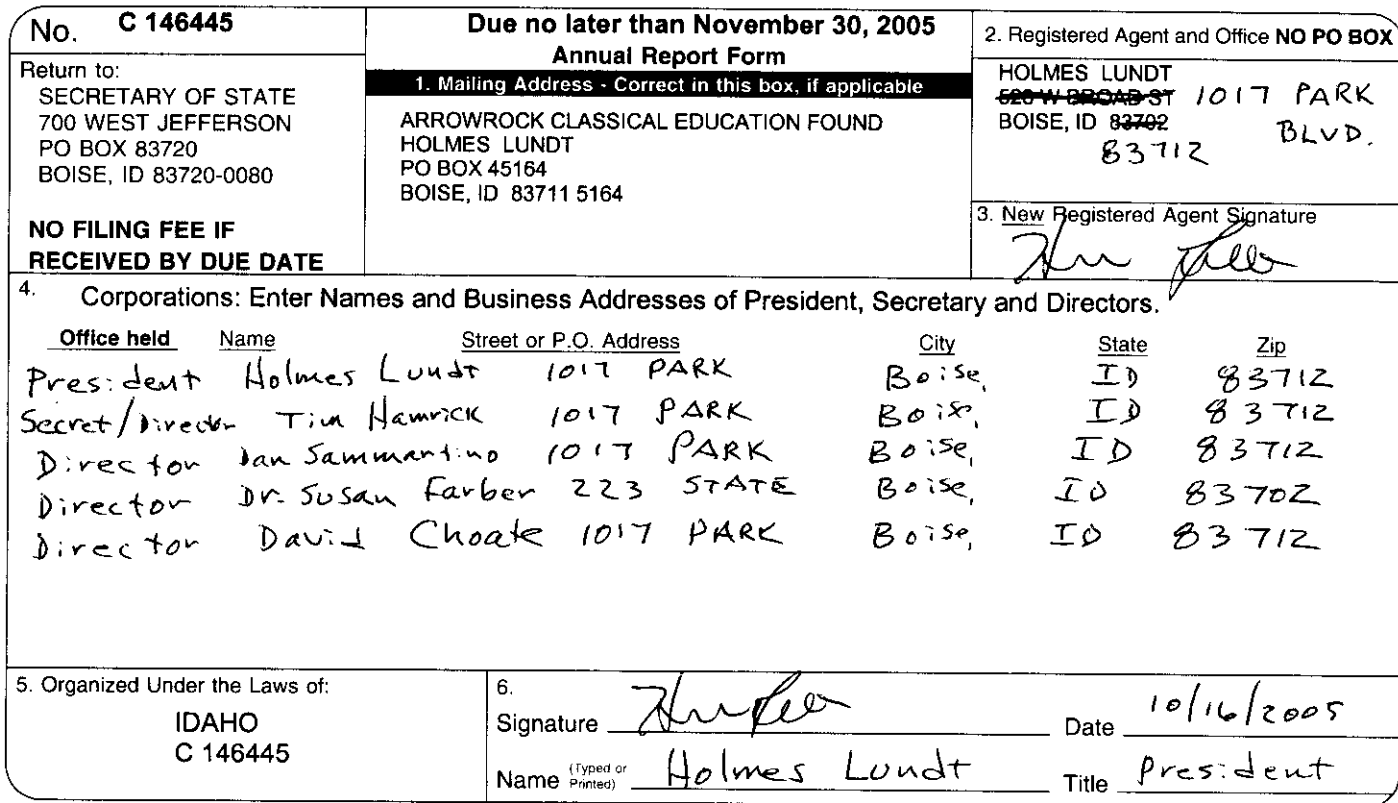 No. C 146445
Return to:
SECRETARY OF STATE
700 WEST JEFFERSON
PO BOX 83720
BOISE, ID 83720-0080
NO FILING FEE IF
RECEIVED BY DUE DATE
Due no later than November 30, 2005
Annual Report Form
1. Mailing Address - Correct in this box, if applicable
ARROWROCK CLASSICAL EDUCATION FOUND
HOLMES LUNDT
PO BOX 45164
BOISE, ID 83711 5164
2. Registered Agent and Office NO PO BOX
HOLMES LUNDT
W BROAD ST 1017 PARK
BOISE, ID 83702 BLVD.
83712
3. New Registered Agent Signature
4. Corporations: Enter Names and Business Addresses of President, Secretary and Directors.
Office held Name Street or P.O. Address City State Zip
President Holmes Lundt 1017 PARK Boise, ID 83712
Secret/Director Tim Hamrick 1017 PARK Boise, ID 83712
Director Dan Sammantino 1017 PARK Boise, ID 83712
Director Dr. Susan Farber 223 STATE Boise, ID 83702
Director David Choate 1017 PARK Boise, ID 83712
5. Organized Under the Laws of:
IDAHO
C 146445
6.
Signature Date 10/16/2005
Name (Typed or Printed) Holmes Lundt Title President